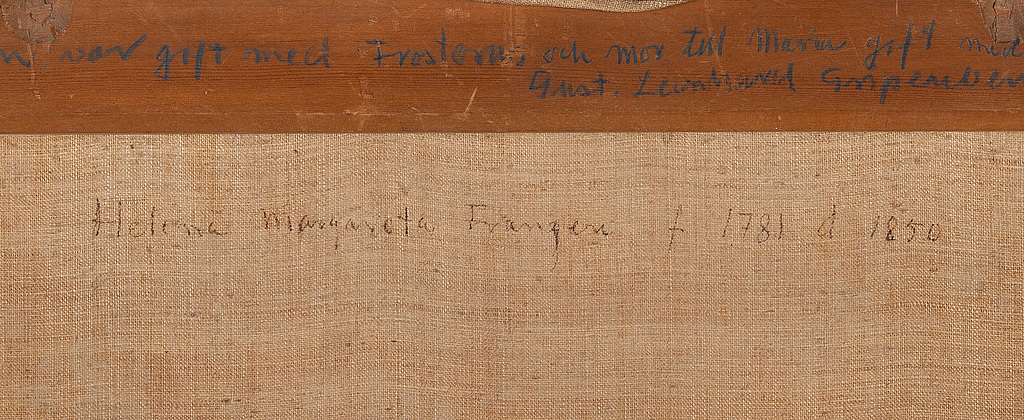 var gift med Frosterus, och mor till Maria gift med
Gust. Leonhard Gripenber
Helena Margareta Franzen f 1781 d 1850